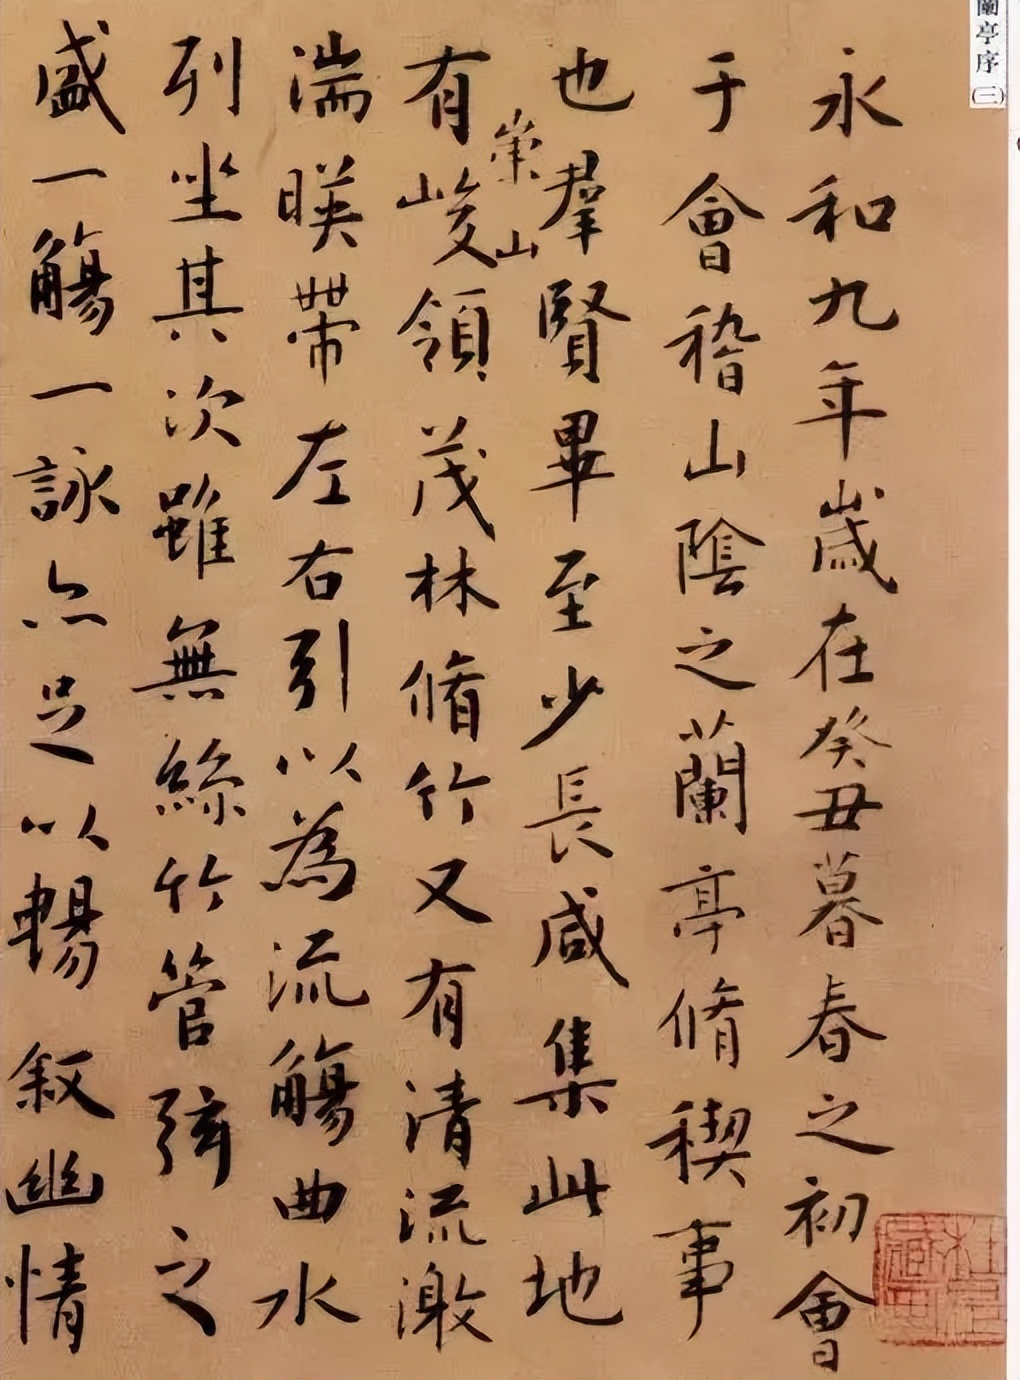 蘭亭序(三)
永和九年歲在癸丑暮春之初會
于會稽山陰之蘭亭脩稧事
也羣賢畢至少長咸集此地
有崇山峻領茂林脩竹又有清流激
湍暎帶左右引以為流觴曲水
列坐其次雖無絲竹管弦之
盛一觴一詠亦足以暢敘幽情